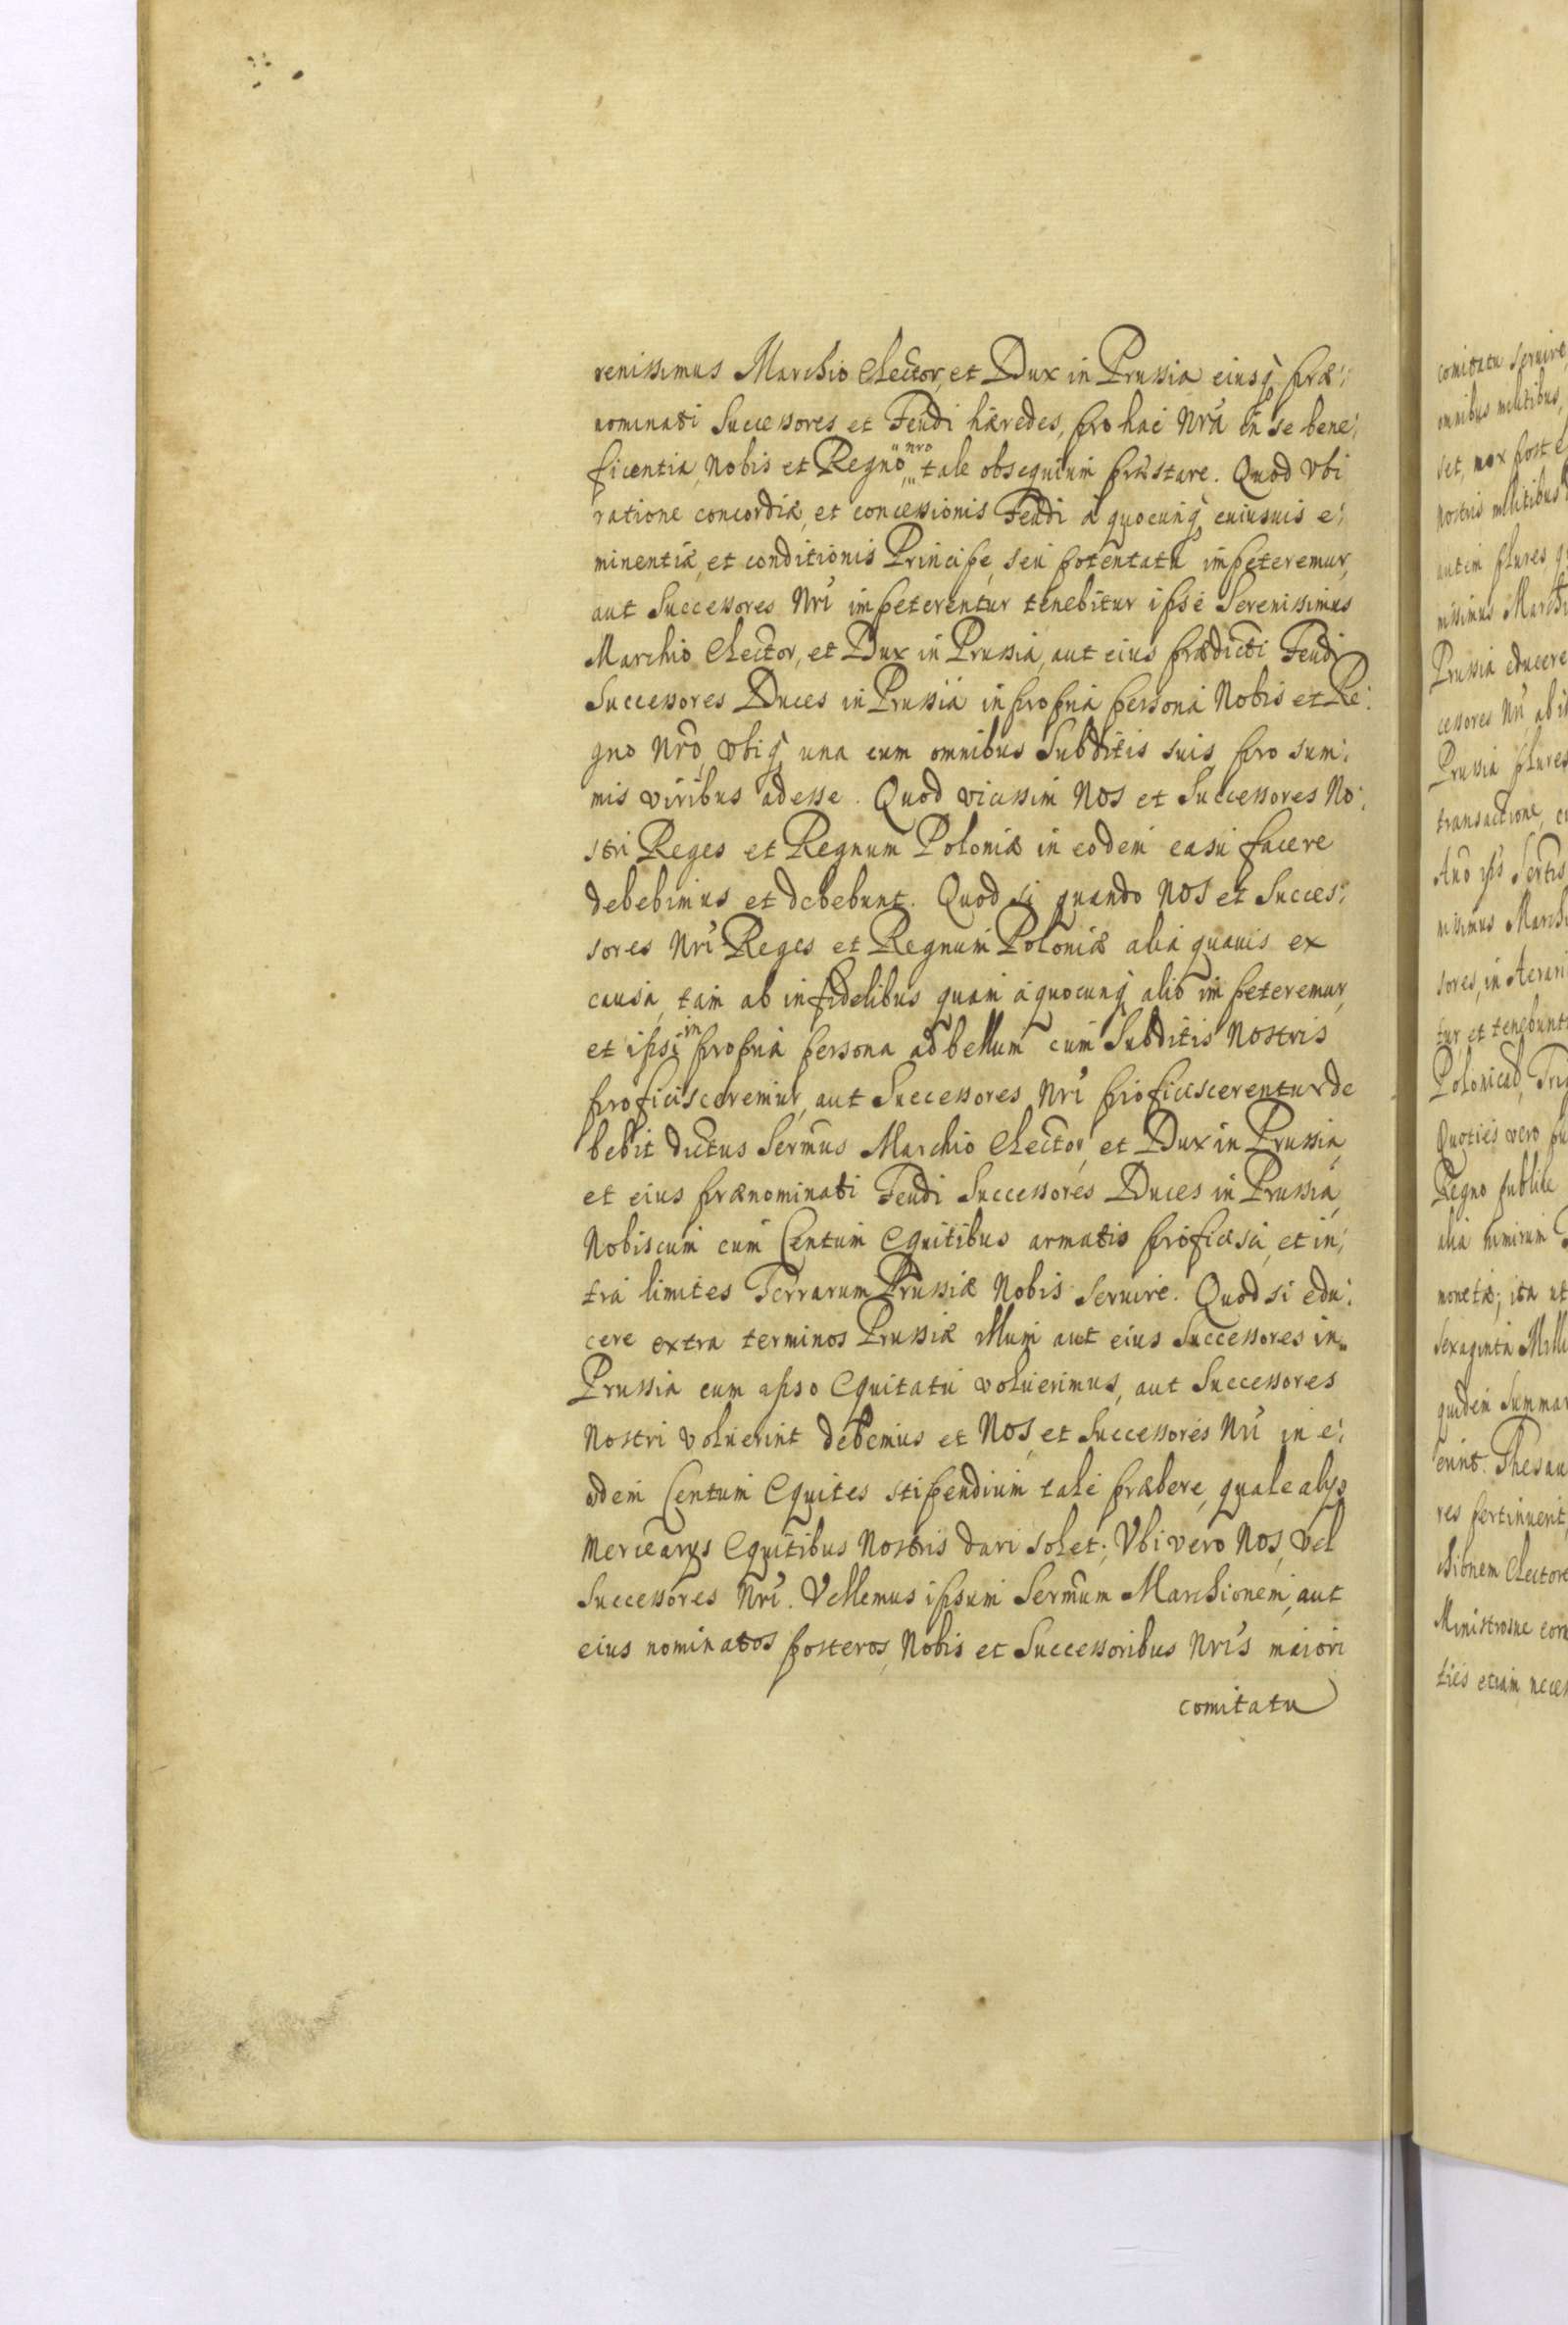 renissimus Marchio Elector, et Dux in Prussia eiusq̀ præ:
nominati Successores et Feudi hæredes, pro hac Nrã in se bene:
ficentia, Nobis et Regno nro tale obsequium præstare. Quod Vbi
ratione concordiæ, et concessionis Feudi à quocunq̀ cuiusuis e:
minentiæ, et conditionis Principe, seu potentatu impeteremur,
aut Successores Nri impeterentur tenebitur ipse Serenissimus
Marchio Elector, et Dux in Prussia, aut eius prædicti Feudi
Successores Duces in Prussia in propria persona Nobis et Re:
gno Nrõ, vbiq̀ una cum omnibus Subditis suis pro sum:
mis viribus adesse. Quod vicissim Nos et Successores No:
stri Reges et Regnum Poloniæ in eodem casu facere
debebimus et debebunt. Quod si quando Nos et Succes:
sores Nri Reges et Regnum Poloniæ alia quauis ex
causa, tam ab infidelibus quam à quocunq̀ alio impeteremur,
et ipsi in propria persona ad bellum cum Subditis Nostris
proficisceremur, aut Successores Nri proficiscerentur de
bebit dictus Sermus Marchio Elector, et Dux in Prussia,
et eius prænominati Feudi Successores Duces in Prussia,
Nobiscum cum Centum Equitibus armatis proficisci, et in:
tra limites Terrarum Prussiæ Nobis seruire. Quod si edu:
cere extra terminos Prussiæ illum aut eius Successores in
Prussia cum ipso Equitatu voluerimus, aut Successores
Nostri voluerint debemus et Nos, et Successores Nri in e:
odem Centum Equites stipendium tale præbere, quale alijs
Mercearijs Equitibus Nostris dari solet; Vbi vero Nos, vel
Successores Nri. Vellemus ipsum Sermum Marchionem, aut
eius nominatos posteros, Nobis et Successoribus Nris maiori
comitatu
comitatu seruire,
omnibus militibus,
set, mox post
nostris militibus
autem plures
nissimus
Prussia educere
cessores Nri, ab
Prussia plures
transactione,
nissimus
sores, in
tur et
Quoties vero
Regno publice
alia nimirum
monetæ; ita ut
Sexaginta
quidem
res pertinuerit,
Ministrosue
ties etiam